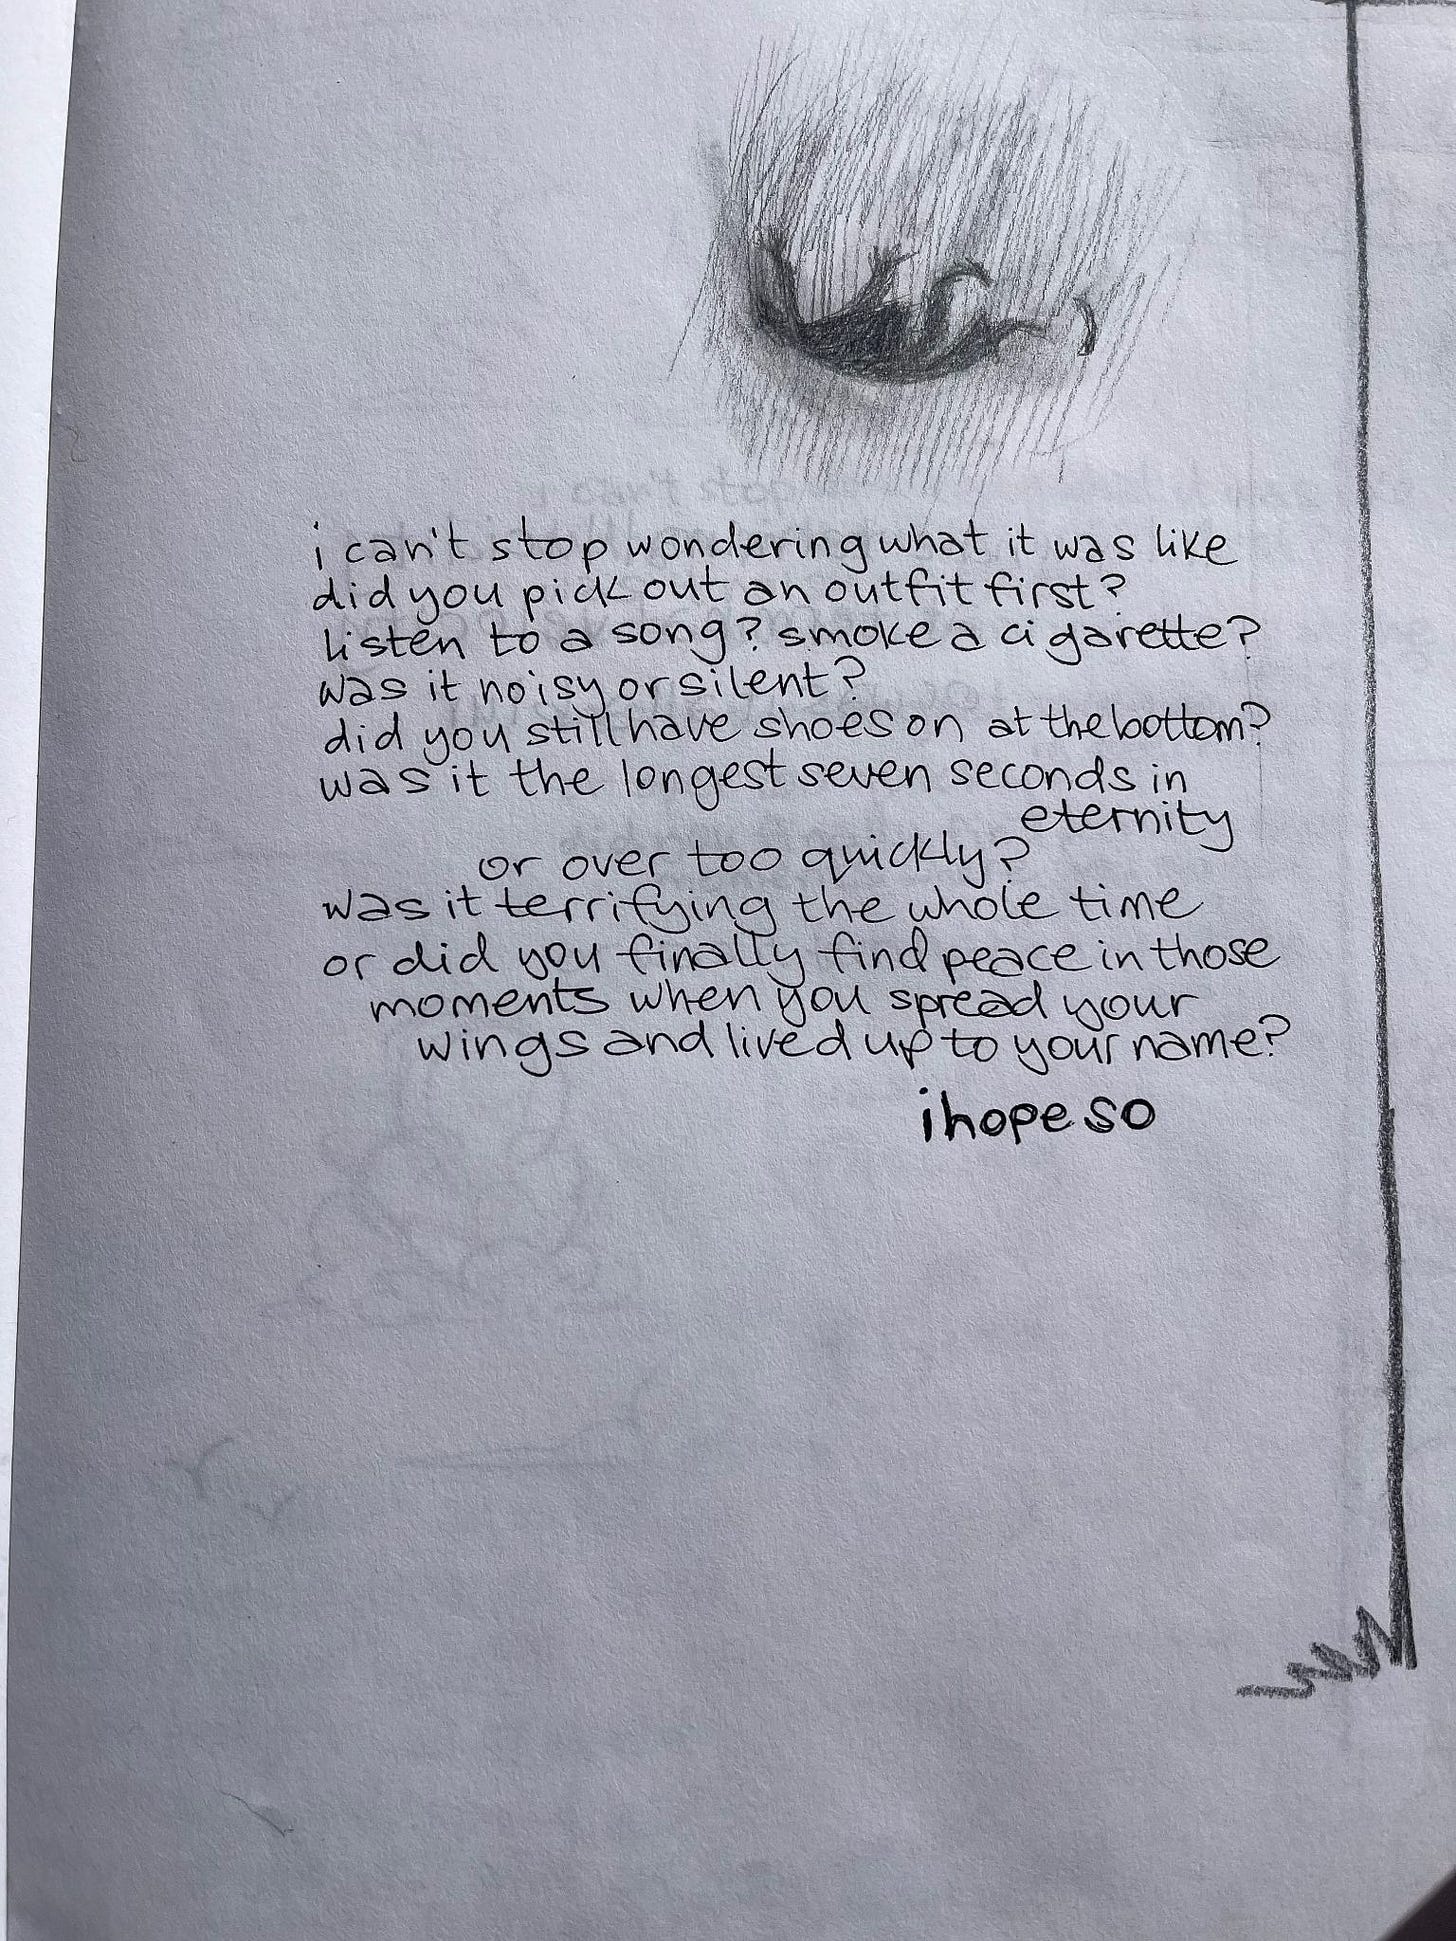 i can't stop wondering what it was like
did you pick out an outfit first?
listen to a song? smoke a cigarette?
was it noisy or silent?
did you still have shoes on at the bottom?
was it the longest seven seconds in
eternity
or over too quickly?
was it terrifying the whole time
or did you finally find peace in those
moments when you spread your
wings and lived up to your name?
i hope so